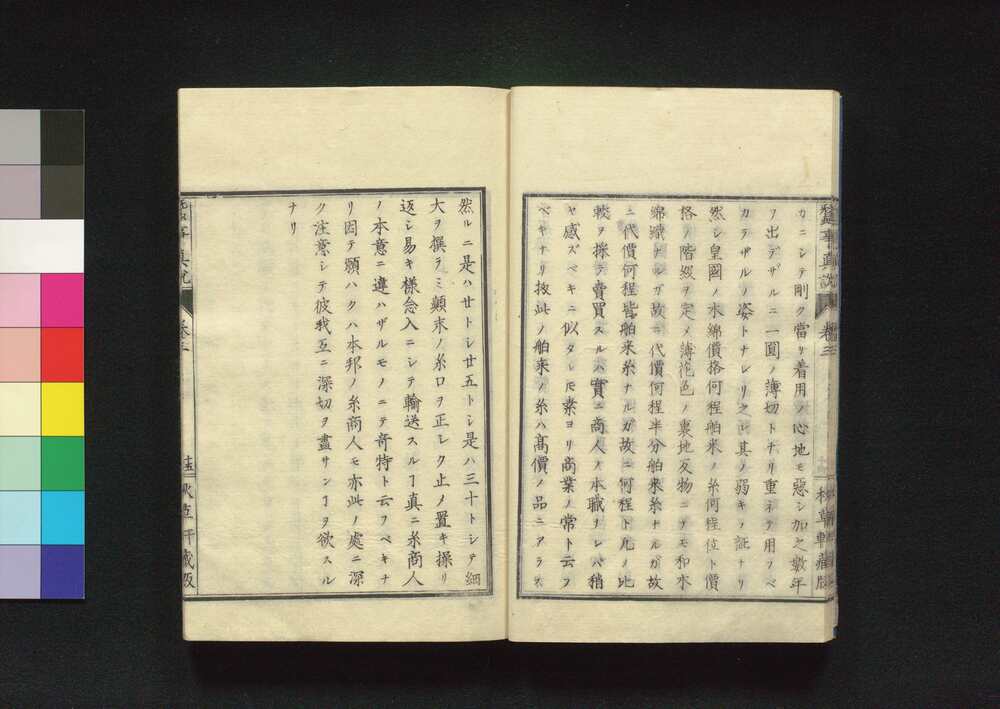 カニシテ剛ク當リ着用ノ心地モ惡シ加之數年
ヲ出デザルニ一圓ノ薄切トナリ重子テ用ノベ
カラザルノ姿トナレリ之レ其ノ弱キノ証ナリ
然シ皇國ノ木綿價格何程舶来ノ糸何程位ト價
格ノ階級ヲ定メ薄花色ノ裏地反物ニテモ和木
綿織ナルガ故ニ代價何程半分舶来糸ナルガ故
ニ代價何程皆舶来糸ナルガ故ニ何程ト凡ノ比
較ヲ採テ賣買スルハ實ニ商人ノ本職ナレバ稍
ヤ感ズベキニ似タレ𪜈素ヨリ商業ノ常ト云フ
ベキナリ扨此ノ舶来ノ糸ハ髙價ノ品ニアラズ
眞説
卷三
然ルニ是ハ廿トシ廿五トシ是ハ三十トシテ細
大ヲ撰ラミ顛末ノ糸口ヲ正レク止ノ置キ操リ
返シ易キ様念入ニシテ輸送スルヿ真ニ糸商人
ノ本意ニ違ハザルモノニテ竒特ト云フベキナ
リ因テ願ハクハ本邦ノ糸商人モ亦此ノ處ニ深
ク注意シテ彼我互ニ深切ヲ盡サンヿヲ欲スル
ナリ